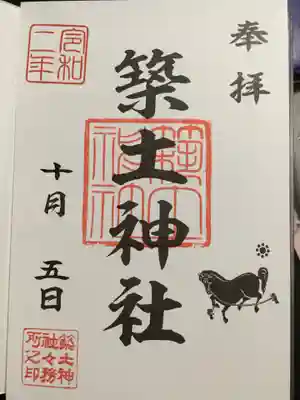 奉拝
令和
二年
築土神社
築土
神社
十月五日
築土神
社々務
所之印